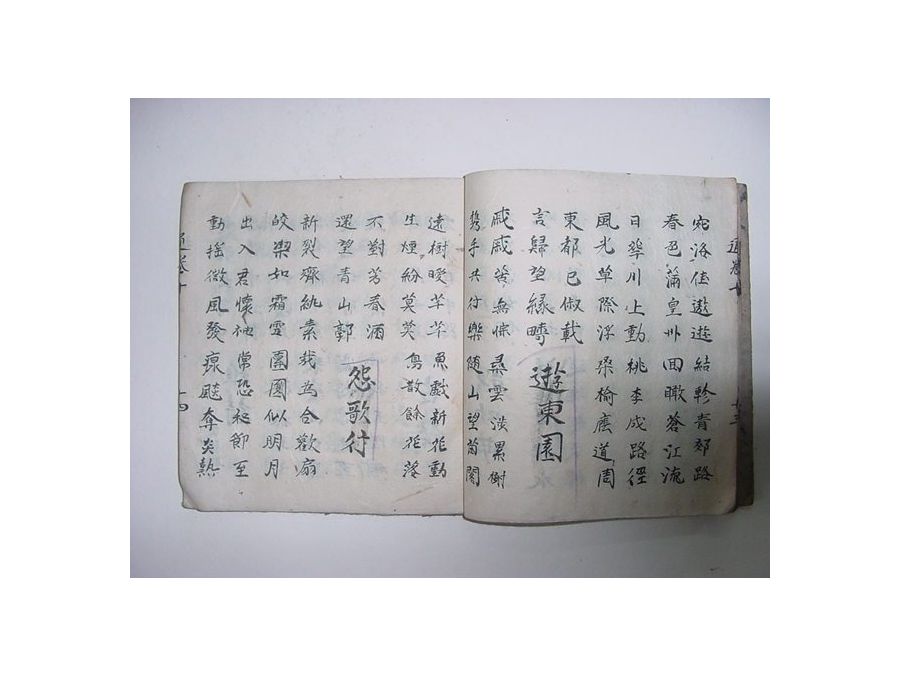 宛洛佳遨遊結軫青郊路
春色滿皇州回瞰蒼江流
日華川上動桃李成路徑
風光草際浮桑榆蔭道周
東都已俶載
言歸望綠疇
遊東園
戚戚苦無悰尋雲陟累榭
携手共行樂随山望菌閣
遠樹曖芊芊魚戲新花動
生煙紛莫莫鳥散餘花落
不對芳春酒
還望青山郭
怨歌行
新裂齊紈素裁為合歡扇
皎潔如霜雪團圓似明月
出入君懷袖常恐秋節至
動搖微風發凉飈奪炎熱
十四